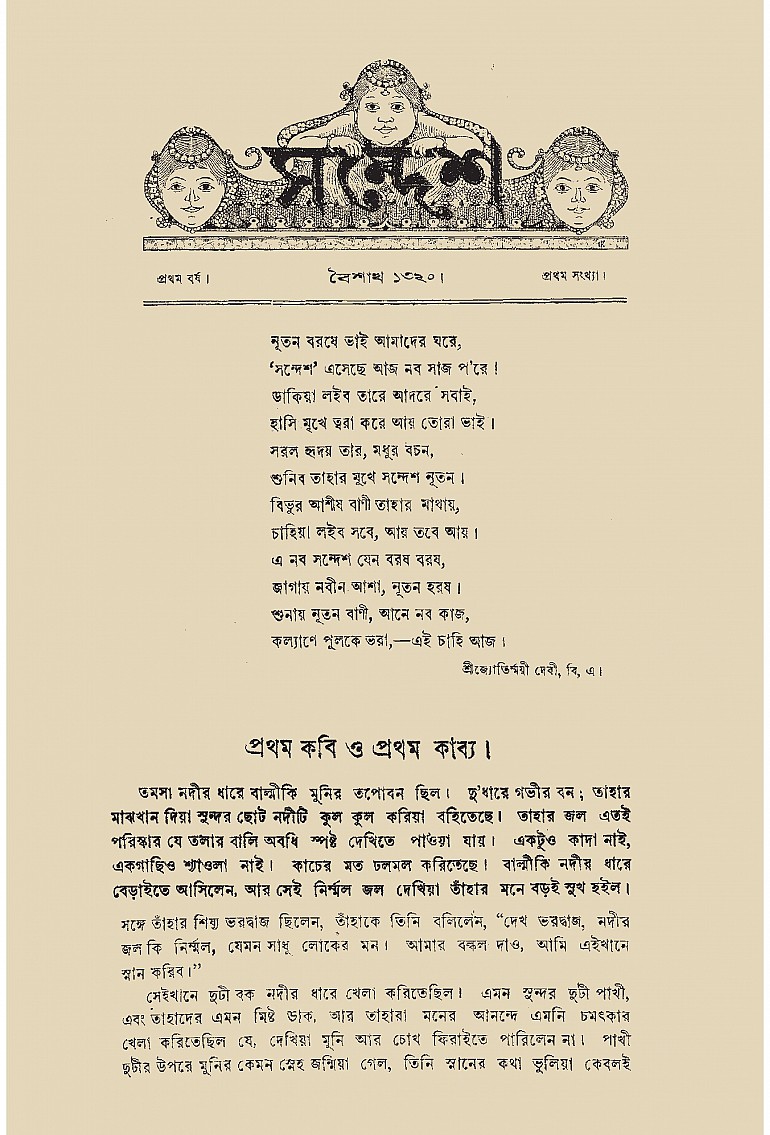 সন্দেশ
প্রথম বর্ষ। বৈশাখ ১৩২০। প্রথম সংখ্যা।
নূতন বরষে ভাই আমাদের ঘরে,
‘সন্দেশ’ এসেছে আজ নব সাজ প'রে!
ডাকিয়া লইব তারে আদরে সবাই,
হাসি মুখে ত্বরা করে আয় তোরা ভাই।
সরল হৃদয় তার, মধুর বচন,
শুনিব তাহার মুখে সন্দেশ নূতন।
বিভুর আশীষ বাণী তাহার মাথায়,
চাহিয়া লইব সবে, আয় তবে আয়।
এ নব সন্দেশ যেন বরষ বরষ,
জাগায় নবীন আশা, নূতন হরষ।
শুনায় নূতন বাণী, আনে নব কাজ,
কল্যাণে পুলকে ভরা,—এই চাহি আজ।
শ্রীজ্যোতির্ম্ময়ী দেবী, বি, এ।
প্রথম কবি ও প্রথম কাব্য।
তমসা নদীর ধারে বাল্মীকি মুনির তপোবন ছিল। দু'ধারে গভীর বন; তাহার
মাঝখান দিয়া সুন্দর ছোট নদীটি কুল কুল করিয়া বহিতেছে। তাহার জল এতই
পরিস্কার যে তলার বালি অবধি স্পষ্ট দেখিতে পাওয়া যায়। একটুও কাদা নাই,
একগাছিও শ্যাওলা নাই। কাচের মত ঢলমল করিতেছে। বাল্মীকি নদীর ধারে
বেড়াইতে আসিলেন, আর সেই নির্ম্মল জল দেখিয়া তাঁহার মনে বড়ই সুখ হইল।
সঙ্গে তাঁহার শিষ্য ভরদ্বাজ ছিলেন, তাঁহাকে তিনি বলিলেন, “দেখ ভরদ্বাজ, নদীর
জল কি নির্ম্মল, যেমন সাধু লোকের মন। আমার বল্কল দাও, আমি এইখানে
স্নান করিব।”
সেইখানে দুটী বক নদীর ধারে খেলা করিতেছিল। এমন সুন্দর দুটী পাখী,
এবং তাহাদের এমন মিষ্ট ডাক, আর তাহারা মনের আনন্দে এমনি চমৎকার
খেলা করিতেছিল যে, দেখিয়া মুনি আর চোখ ফিরাইতে পারিলেন না। পাখী
দুটীর উপরে মুনির কেমন স্নেহ জন্মিয়া গেল, তিনি স্নানের কথা ভুলিয়া কেবলই